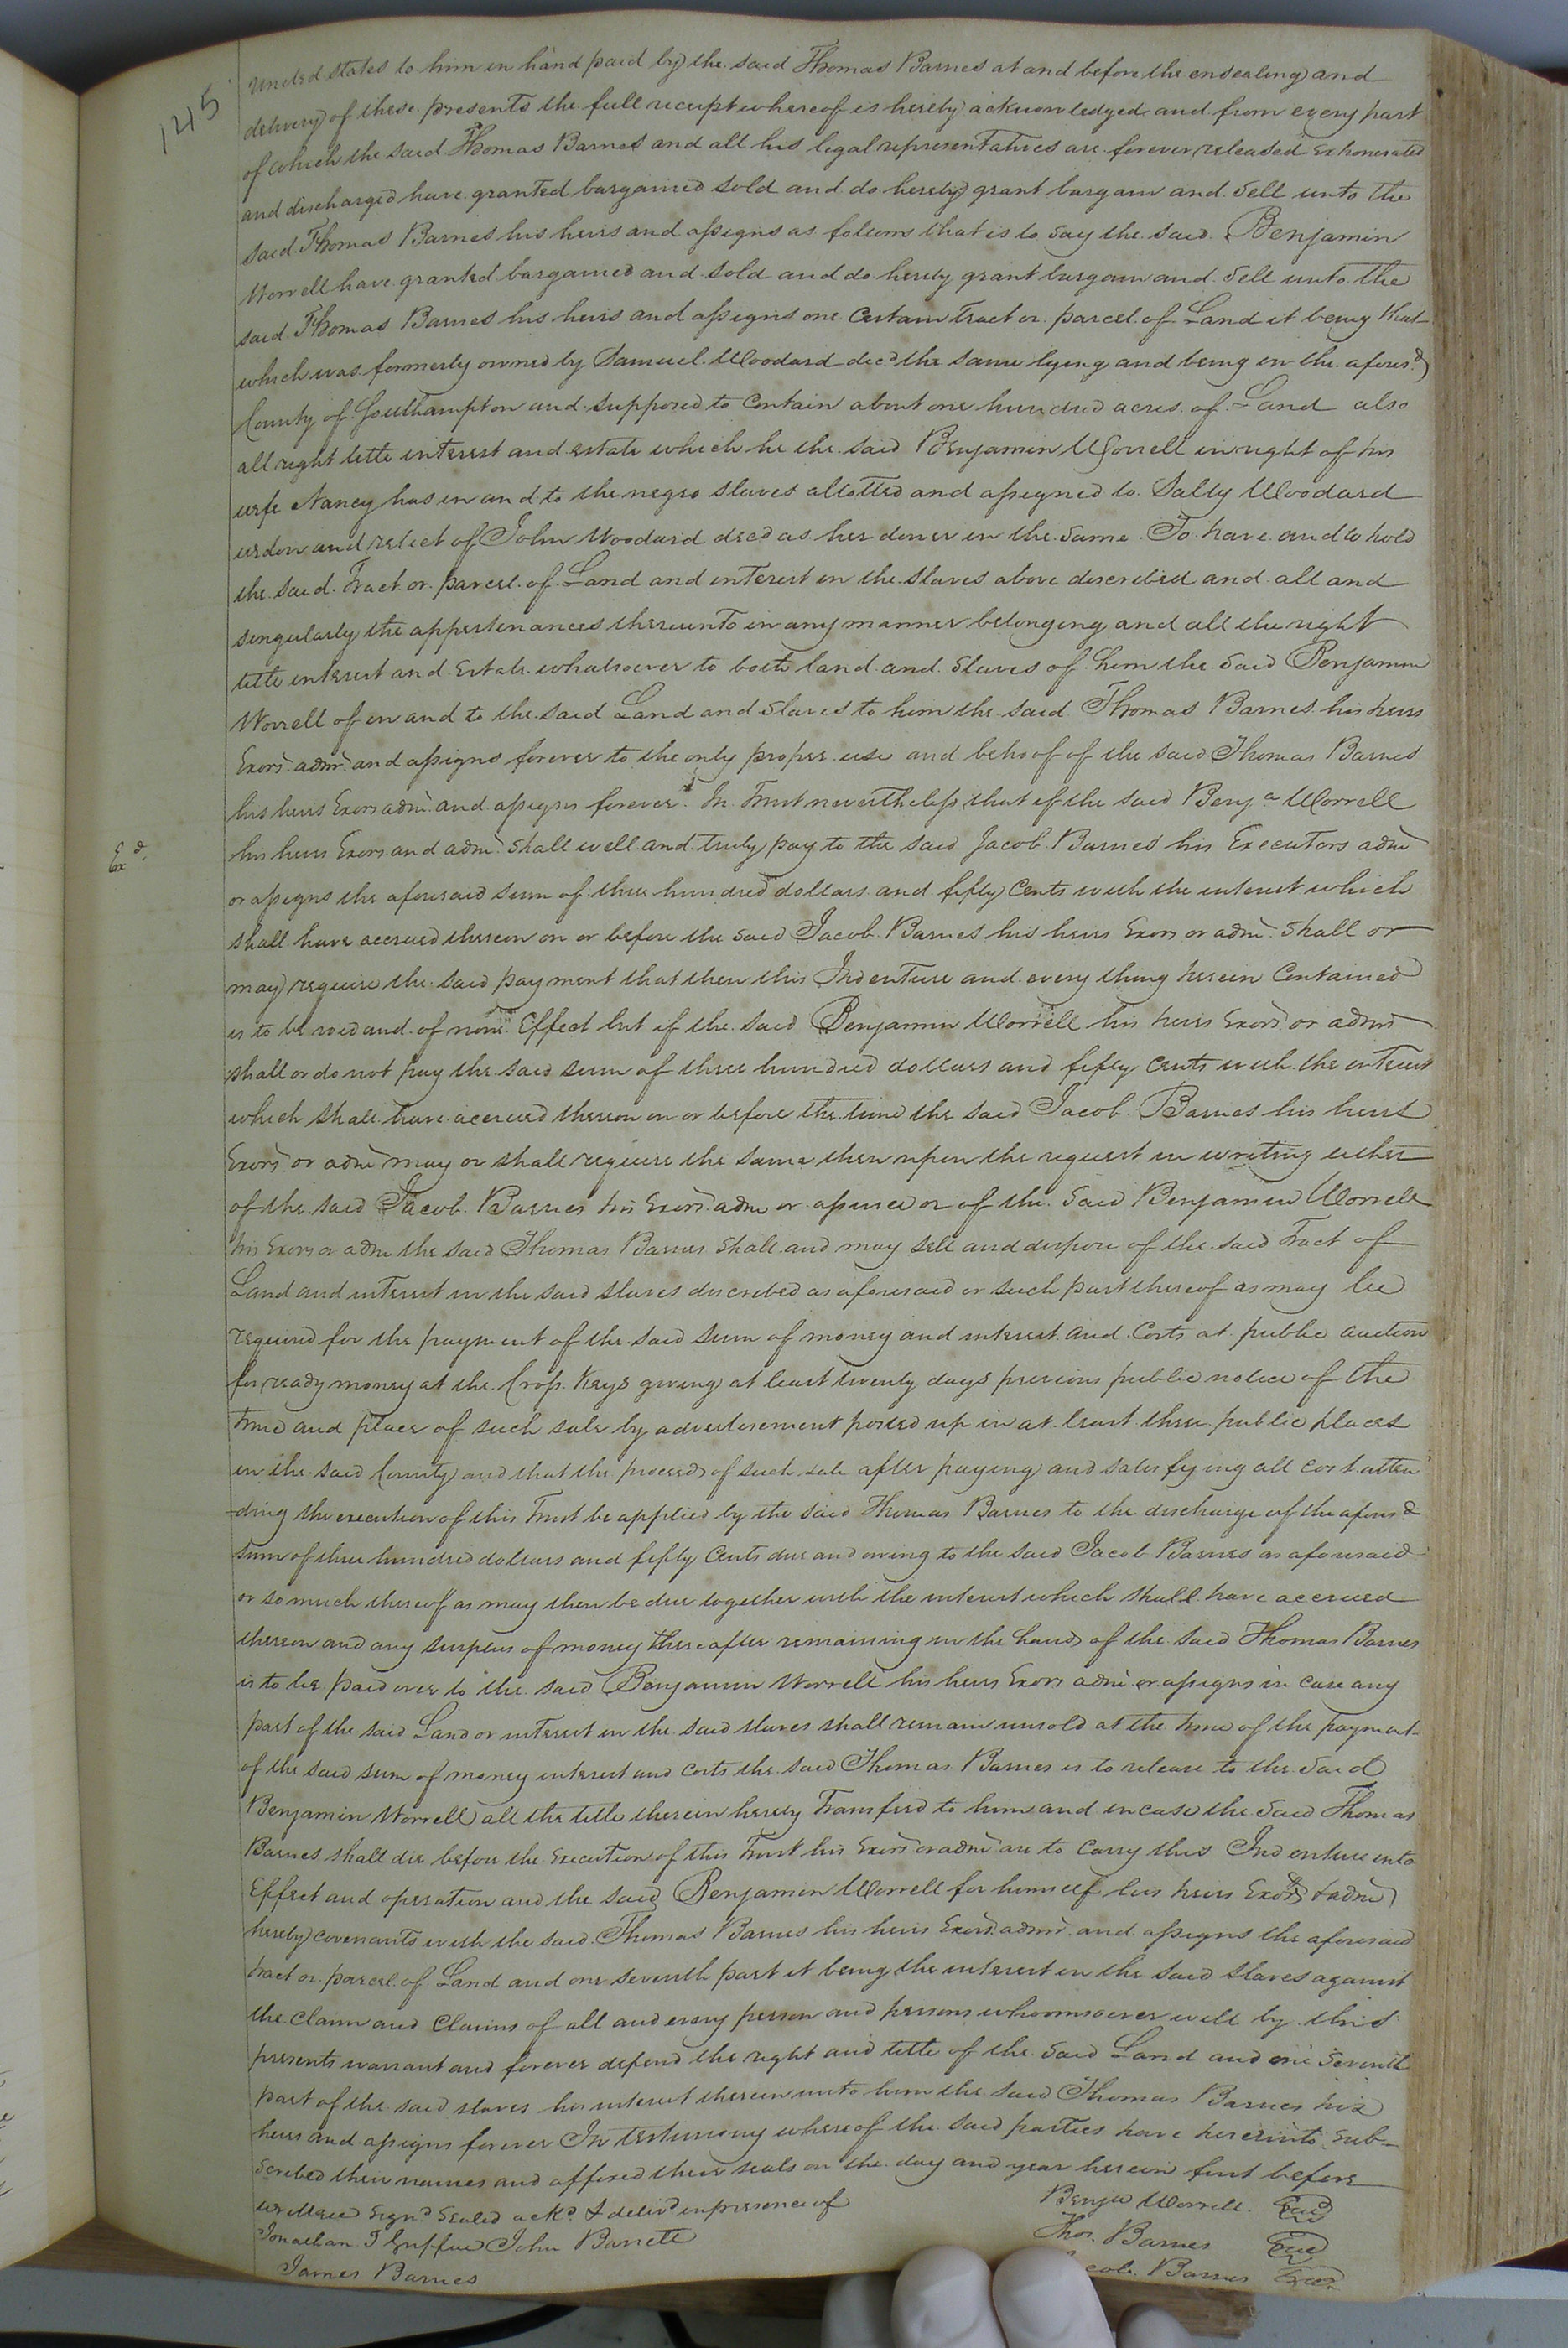 145
United States to him in hand paid by the said Thomas Barnes at and before the ensealing and
delivery of these presents the full receipt whereof is hereby acknowledged and from every part
of which the said Thomas Barnes and all his legal representatives are forever released exhonerated
and discharged have granted bargained sold and do hereby grant bargain and sell unto the
said Thomas Barnes his heirs and assigns as follows that is to say the said Benjamin
Worrell have granted bargained and sold and do hereby grant bargain and sell unto the
said Thomas Barnes his heirs and assigns one Certain Tract or parcel of Land it being that
which was formerly owned by Samuel Woodard decd the same lying and being in the aforesd
County of Southampton and supposed to Contain about one hundred acres of Land also
all right title interest and estate which he the said Benjamin Worrell in right of his
wife Nancy has in and to the negro slaves allotted and assigned to Sally Woodard
widow and relict of John Woodard decd as her dower in the same To have and to hold
the said Tract or parcel of Land and interest in the slaves above described and all and
singularly the appertenances thereunto in any manner belonging and all the right
title interest and Estate whatsoever to both land and Slaves of him the said Benjamin
Worrell of in and to the said Land and Slaves to him the said Thomas Barnes his heirs
Exors admr and assigns forever to the only proper use and behoof of the said Thomas Barnes
his heirs Exors admr and assigns forever In Trust nevertheless that if the said Benja Worrell
Exd
his heirs Exors and admr shall well and truly pay to the said Jacob Barnes his Executors admr
or assigns the aforesaid sum of three hundred dollars and fifty Cents with the interest which
shall have accrued thereon on or before the said Jacob Barnes his heirs Exors or admr shall or
may require the said payment that then this Indenture and every thing herein Contained
is to be void and of none Effect but if the said Benjamin Worrell his heirs Exors or admrs
shall or do not pay the said sum of three hundred dollars and fifty Cents with the interest
which shall have accrued thereon on or before the time the said Jacob Barnes his heirs
Exors or admr may or shall require the same then upon the request in writing either
of the said Jacob Barnes his Exors admr or or of the said Benjamin Worrell
his Exors or admr the said Thomas Barnes shall and may sell and dispose of the said Tract of
Land and interest in the said slaves described as aforesaid or such part thereof as may be
required for the payment of the said sum of money and interest and Costs at public auction
for ready money at the Cross Keys giving at least twenty days previous public notice of the
time and place of such sale by advertisement posted up in at least three public places
in the said County and that the proceeds of such sale after paying and satisfying all cost atten
-ding the execution of this Trust be applied by the said Thomas Barnes to the discharge of the aforesd
sum of three hundred dollars and fifty Cents due and owing to the said Jacob Barnes as aforesaid
or so much thereof as may then be due together with the interest which shall have accrued
thereon and any surplus of money thereafter remaining in the hands of the said Thomas Barnes
is to be paid over to the said Benjamin Worrell his heirs Exors admr or assigns in case any
part of the said Land or interest in the said slaves shall remain unsold at the time of the payment
of the said sum of money interest and costs the said Thomas Barnes is to release to the said
Benjamin Worrell all the title therein hereby Transferd to him and in case the said Thomas
Barnes shall die before the Execution of this Trust his Exors or admr are to Carry this Indenture into
Effect and operation and the said Benjamin Worrell for himself his heirs Exors & admr
hereby covenants with the said Thomas Barnes his heirs Exors admr and assigns the aforesaid
tract or parcel of Land and one seventh part it being the interest in the said slaves against
the claim and Claims of all and every person and persons whoomsoever will by this
presents warrant and forever defend the right and title of the said Land and one Seventh
part of the said slaves his interest therein unto him the said Thomas Barnes his
heirs and assigns forever In testimony whereof the said parties have hereinto sub-
scribed their names and affixed their seals on the day and year herein first before
written Signd Sealed ackd & delivd in presence of Benja Worrell Seal
Jonathan T Griffin John Barrett Thos. Barnes Seal
James Barnes cob Barnes Seal